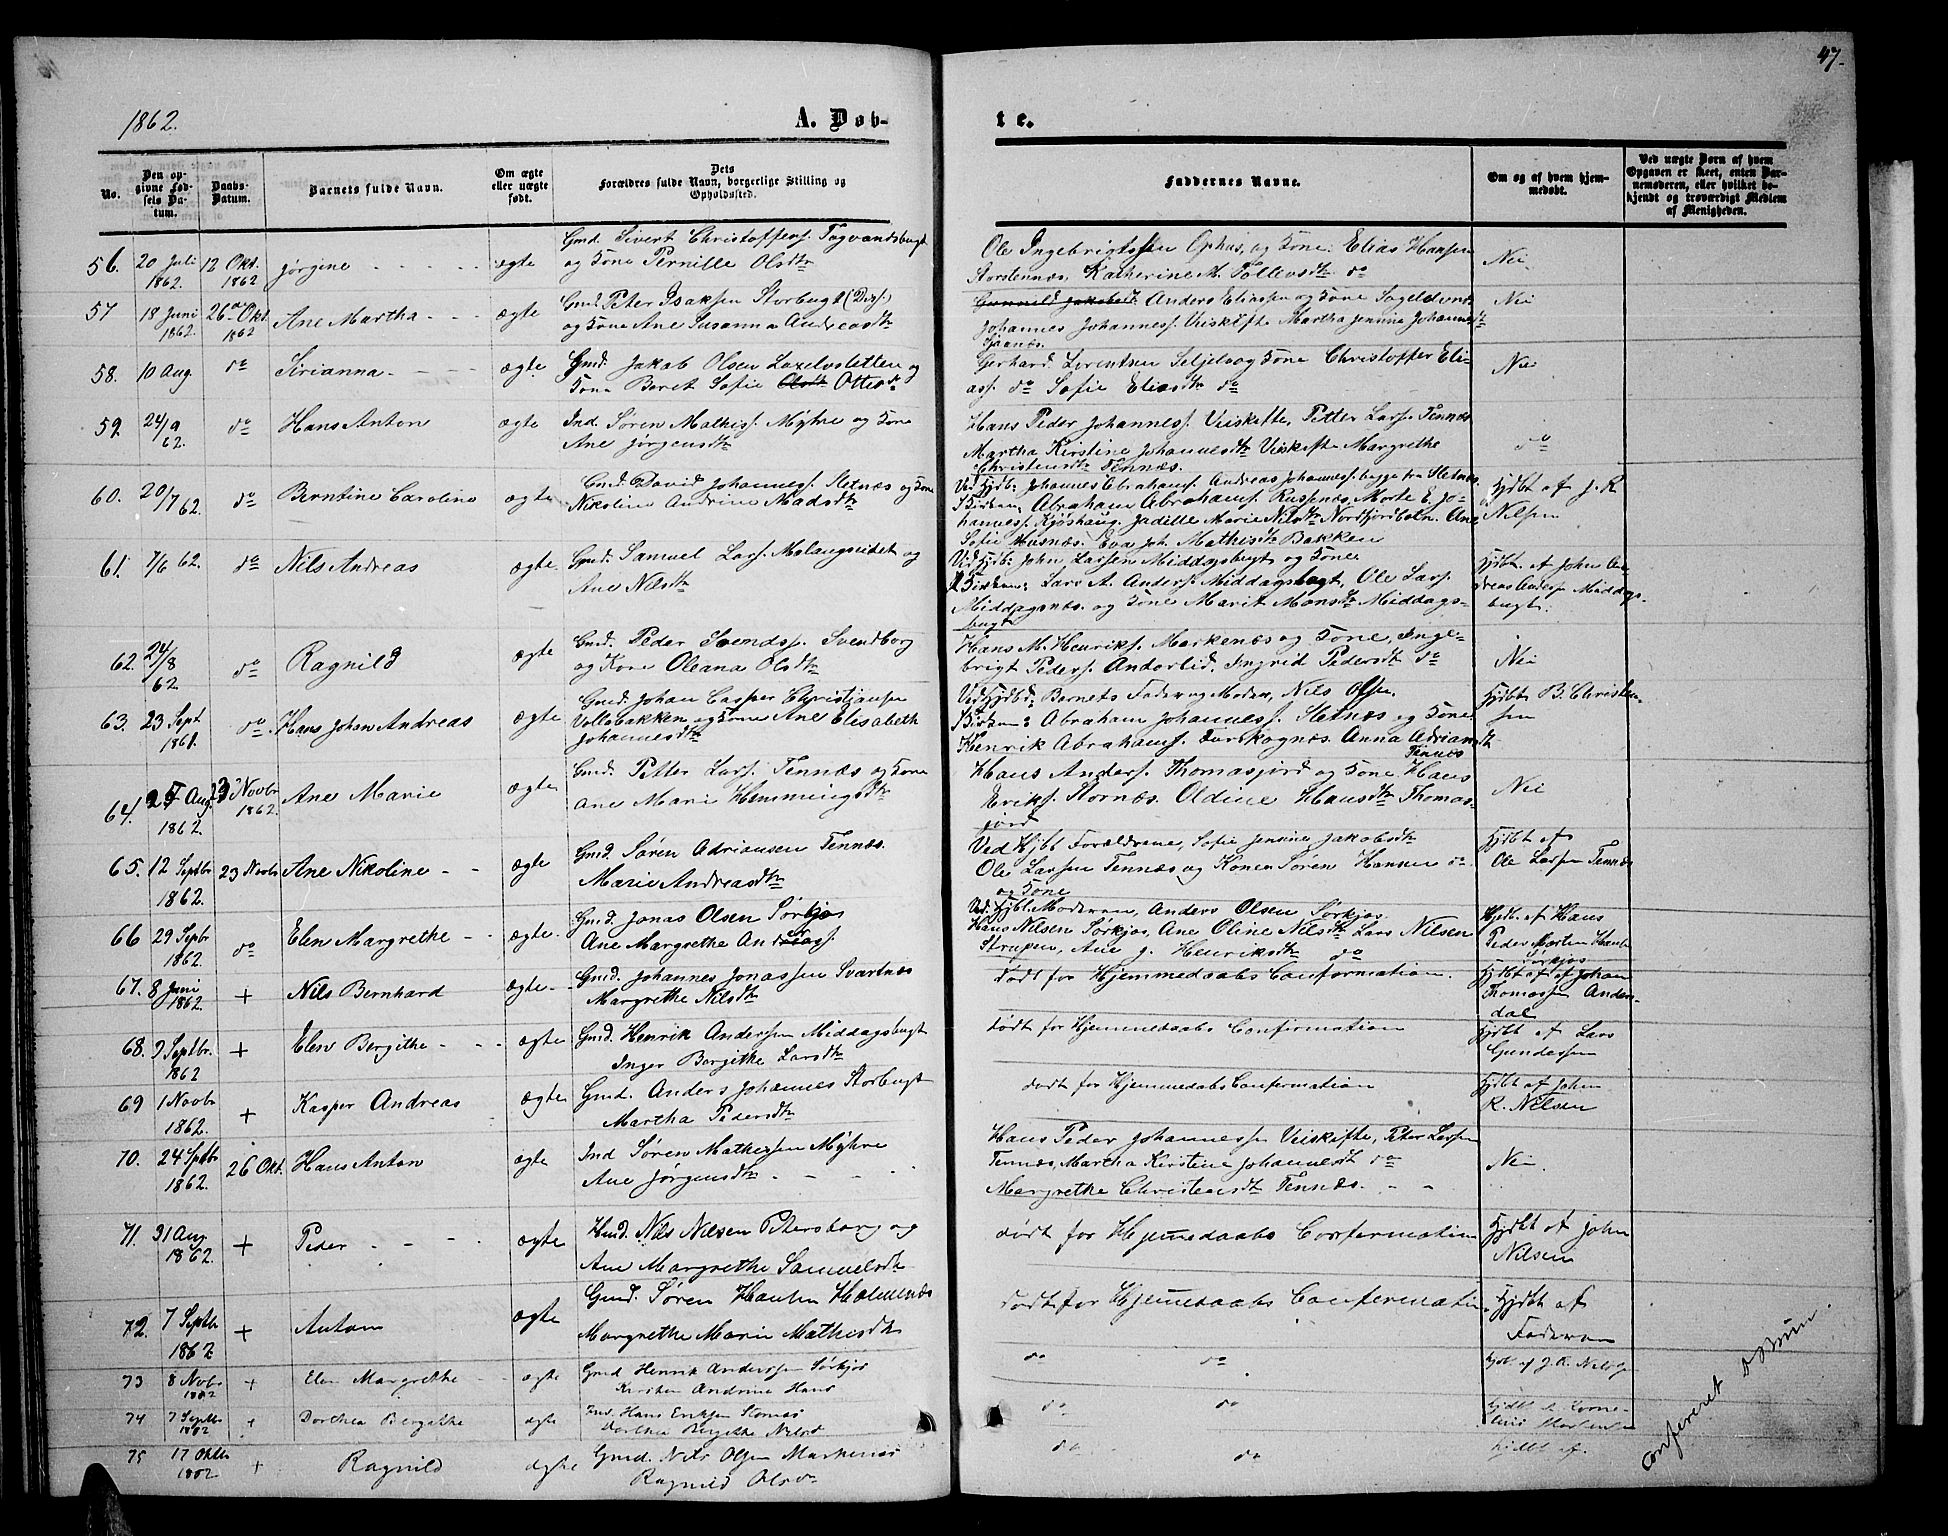 47.
1862.
A. Døb-
te.
No.
Den op-
givne Fød-
sels Da-
tum.
Daabs-
Datum.
Barnets fulde Navn.
Om ægte
eller uægte
født.
Dets
Forældres fulde Navn, borgerlige Stilling og
Opholdssted.
Faddernes Navne.
Om og af hvem hjem-
medøbt.
Ved uægte Børn af hvem
Opgaven er skeet, enten Bar-
nemoderen, eller hvilket be-
kjendt og troværdigt Medlem
af Menigheden.
56. 20 Juli 1862. 12 Okt. 1862 Jørgine - - - - ægte
Gmd. Sivert Christoffers. Tagvandsbugt
og Kone Pernille Olsdtr
Ole Ingebrigtssen Ophus, og Kone, Elias Hansen
Storstennæs, Katherine M. Tollevsdtr do
Nei
57 18 Juni 1862. 26 Okt. 1862 Ane Martha - - - ægte
Gmd. Peter Isaksen Storbugt
og Kone Ane Susanna Andreasdtr
Gunnild Jakobsdtr Anders Eliassen og Kone Sageldvend
Johannes Johannes. Veiskifte Martha Jennine Johannesdtr
Nei
58. 10 Aug. do Sirianna - - - - ægte
Gmd. Jakob Olsen Laxelvsletten og
Kone Beret Sofie Olsdtr Ottesdtr
Gerhard Lorentsen Seljelv og Kone Christoffer Eli-
ass. do Sofie Eliasdtr do
Nei
59. 24/9 62. do Hans Anton ægte
Ind. Søren Mathis. Myhre og Kone
Ane Jørgensdtr
Hans Peder Johannes. Veiskifte, Petter Lars. Tennæs
Martha Kirstine Johannesdtr Veiskifte Margrethe
Christensdtr Tennæs.
do
60. 20/7 62. do Berntine Caroline ægte
Gmd. David Johannes. Sletnæs og Kone
Nikoline Andrine Madsdtr
Ved Hjdb: Johannes Abrahams. Andreas Johannes. begge fra Sletnæs.
I Kirken: Abraham Abrahams. Russenæs, Morte E. Jo-
hannes. Kjøshaug. Jadille Marie Nilsdtr Nordfjordbotn. Ane
Sofie Husnæs. Eva Joh. Mathisdtr Bakken
Hjdbt af J. R
Nilsen
61. 7/6 62. do Nils Andreas ægte
Gmd. Samuel Lars. Malangseidet og
Ane Nilsdtr
Ved Hjdb: John Larsen Middagsbugt og Kone
I Kirken: Lars A. Anders. Middagsbugt, Ole Lars.
Middagsnæs. og Kone Marit Monsdtr Middags-
bugt
Hjdbt. af John An-
dreas Anders. Middags-
bugt.
62. 24/8 62 do Ragnild ægte
Gmd. Peder Svends. Svendborg
og Kone Oleana Olsdtr
Hans M. Henriks. Markenæs og Kone, Inge-
brigt Peders. Anderlid. Ingrid Pedersdtr do
Nei
63. 23 Sept 1861. do Hans Johan Andreas ægte
Gmd. Johan Casper Christiansen
Vollebakken og Kone Ane Elisabeth
Johannesdtr
Ved Hjdb: Barnets Fader og Moder, Nils Olsen.
I Kirken: Abraham Johannes. Sletnæs og Kone
Henrik Abrahams. Anna Adriansdtr
Tennæs
Hjdbt B. Christen-
sen
64. 25 Aug. 1862. 23 Novbr 1862. Ane Marie ægte
Gmd. Petter Lars. Tennæs og Kone
Ane Marie Hemmingsdtr
Hans Anders. Thomasjord og Kone Hans
Eriks. Stornæs. Oldine Hansdtr Thomas-
jord
Nei
65. 12 Septbr 1862. 23 Novbr Ane Nikoline - - ægte
Gmd. Søren Adriansen Tennæs.
Marie Andreasdtr
Ved Hjbt Forældrene, Sofie Jennine Jakobsdtr
Ole Larsen Tennæs og Konen Søren Hansen do
og Kone
Hjdbt af
Ole Larsen Tennæs
66 29 Septbr 1862. do Elen Margrethe - - ægte.
Gmd. Jonas Olsen Sørkjos
Ane Margrethe Anders.
Ved. Hjbt. Moderen, Anders Olsen Sørkjos
Hans Nilsen Sørkjos, Ane Oline Nilsdtr Lars Nilsen
Strupen, Ane J. Henriksdtr do
Hjdb. af Hans
Peder Morten
Sørkjos
67. 8 Juni 1862. + Nils Bernhard ægte -
Gmd. Johannes Jonassen Svartnæs
Margrethe Nilsdtr
Dødt for Hjemmedaabs Confirmation.
Hjdbt af Johan
Thomassen Anders-
dal
68. 9 Septbr. 1862 + Elen Bergithe - - - ægte
Gmd. Henrik Andersen Middagsbugt
Inger Bergithe Larsdtr
Dødt for Hjemmedaabs Confirmation
Hjdbt af Lars
Gundersen
69 1 Novbr 1862. + Kasper Andreas ægte
Gmd. Anders Johannes Storbugt
Martha Pedersdtr
dødt for Hjemmedaabs Confirmation
Hjdbt af John
R. Nilsen
70. 24 Septbr 1862. 26 Okt. Hans Anton ægte
Ind Søren Mathesen Myhre
Ane Jørgensdtr - - -
Hans Peder Johannessen Veiskifte, Peter Larsen
Tennæs, Martha Kirstine Johannesdtr do
Margrethe Christensdtr Tennæs. - -
Nei.
71. 31 Aug 1862. + Peder - - - ægte
Hmd. Nils Nilsen Petersborg og
Ane Margrethe Samuelsdtr
dødt for Hjemmedaabs Confermation
Hjdbt af John
Nilsen
72. 7 Septbr 1862 + Anton ægte
Gmd. Søren Hansen Holmenæs
Margrethe Marie Mathisdtr
dødt for Hjemmedaabs Confermatin
Hjdbt af
Faderen
73 8 Novbr 1862 + Elen Margrethe - - ægte
Gmd Henrik Anderssen Sørkjos
Kirsten Andrine Hans
do do
hjdt af J. R. Nilsen
74 7 Septbr 1862 + Dorthea Bergithe ægte
Ind. Hans Eriksen Stornæs
Dorthea Bergithe Nilsd
do do
hjdbt af Korne-
lius Mortensen
75 17 Oktbr 1862 + Ragnild ægte
Gmd. Nils Olsen Markenæs
Ragnild Olsdtr
do do
hjdbt af.
Confereret